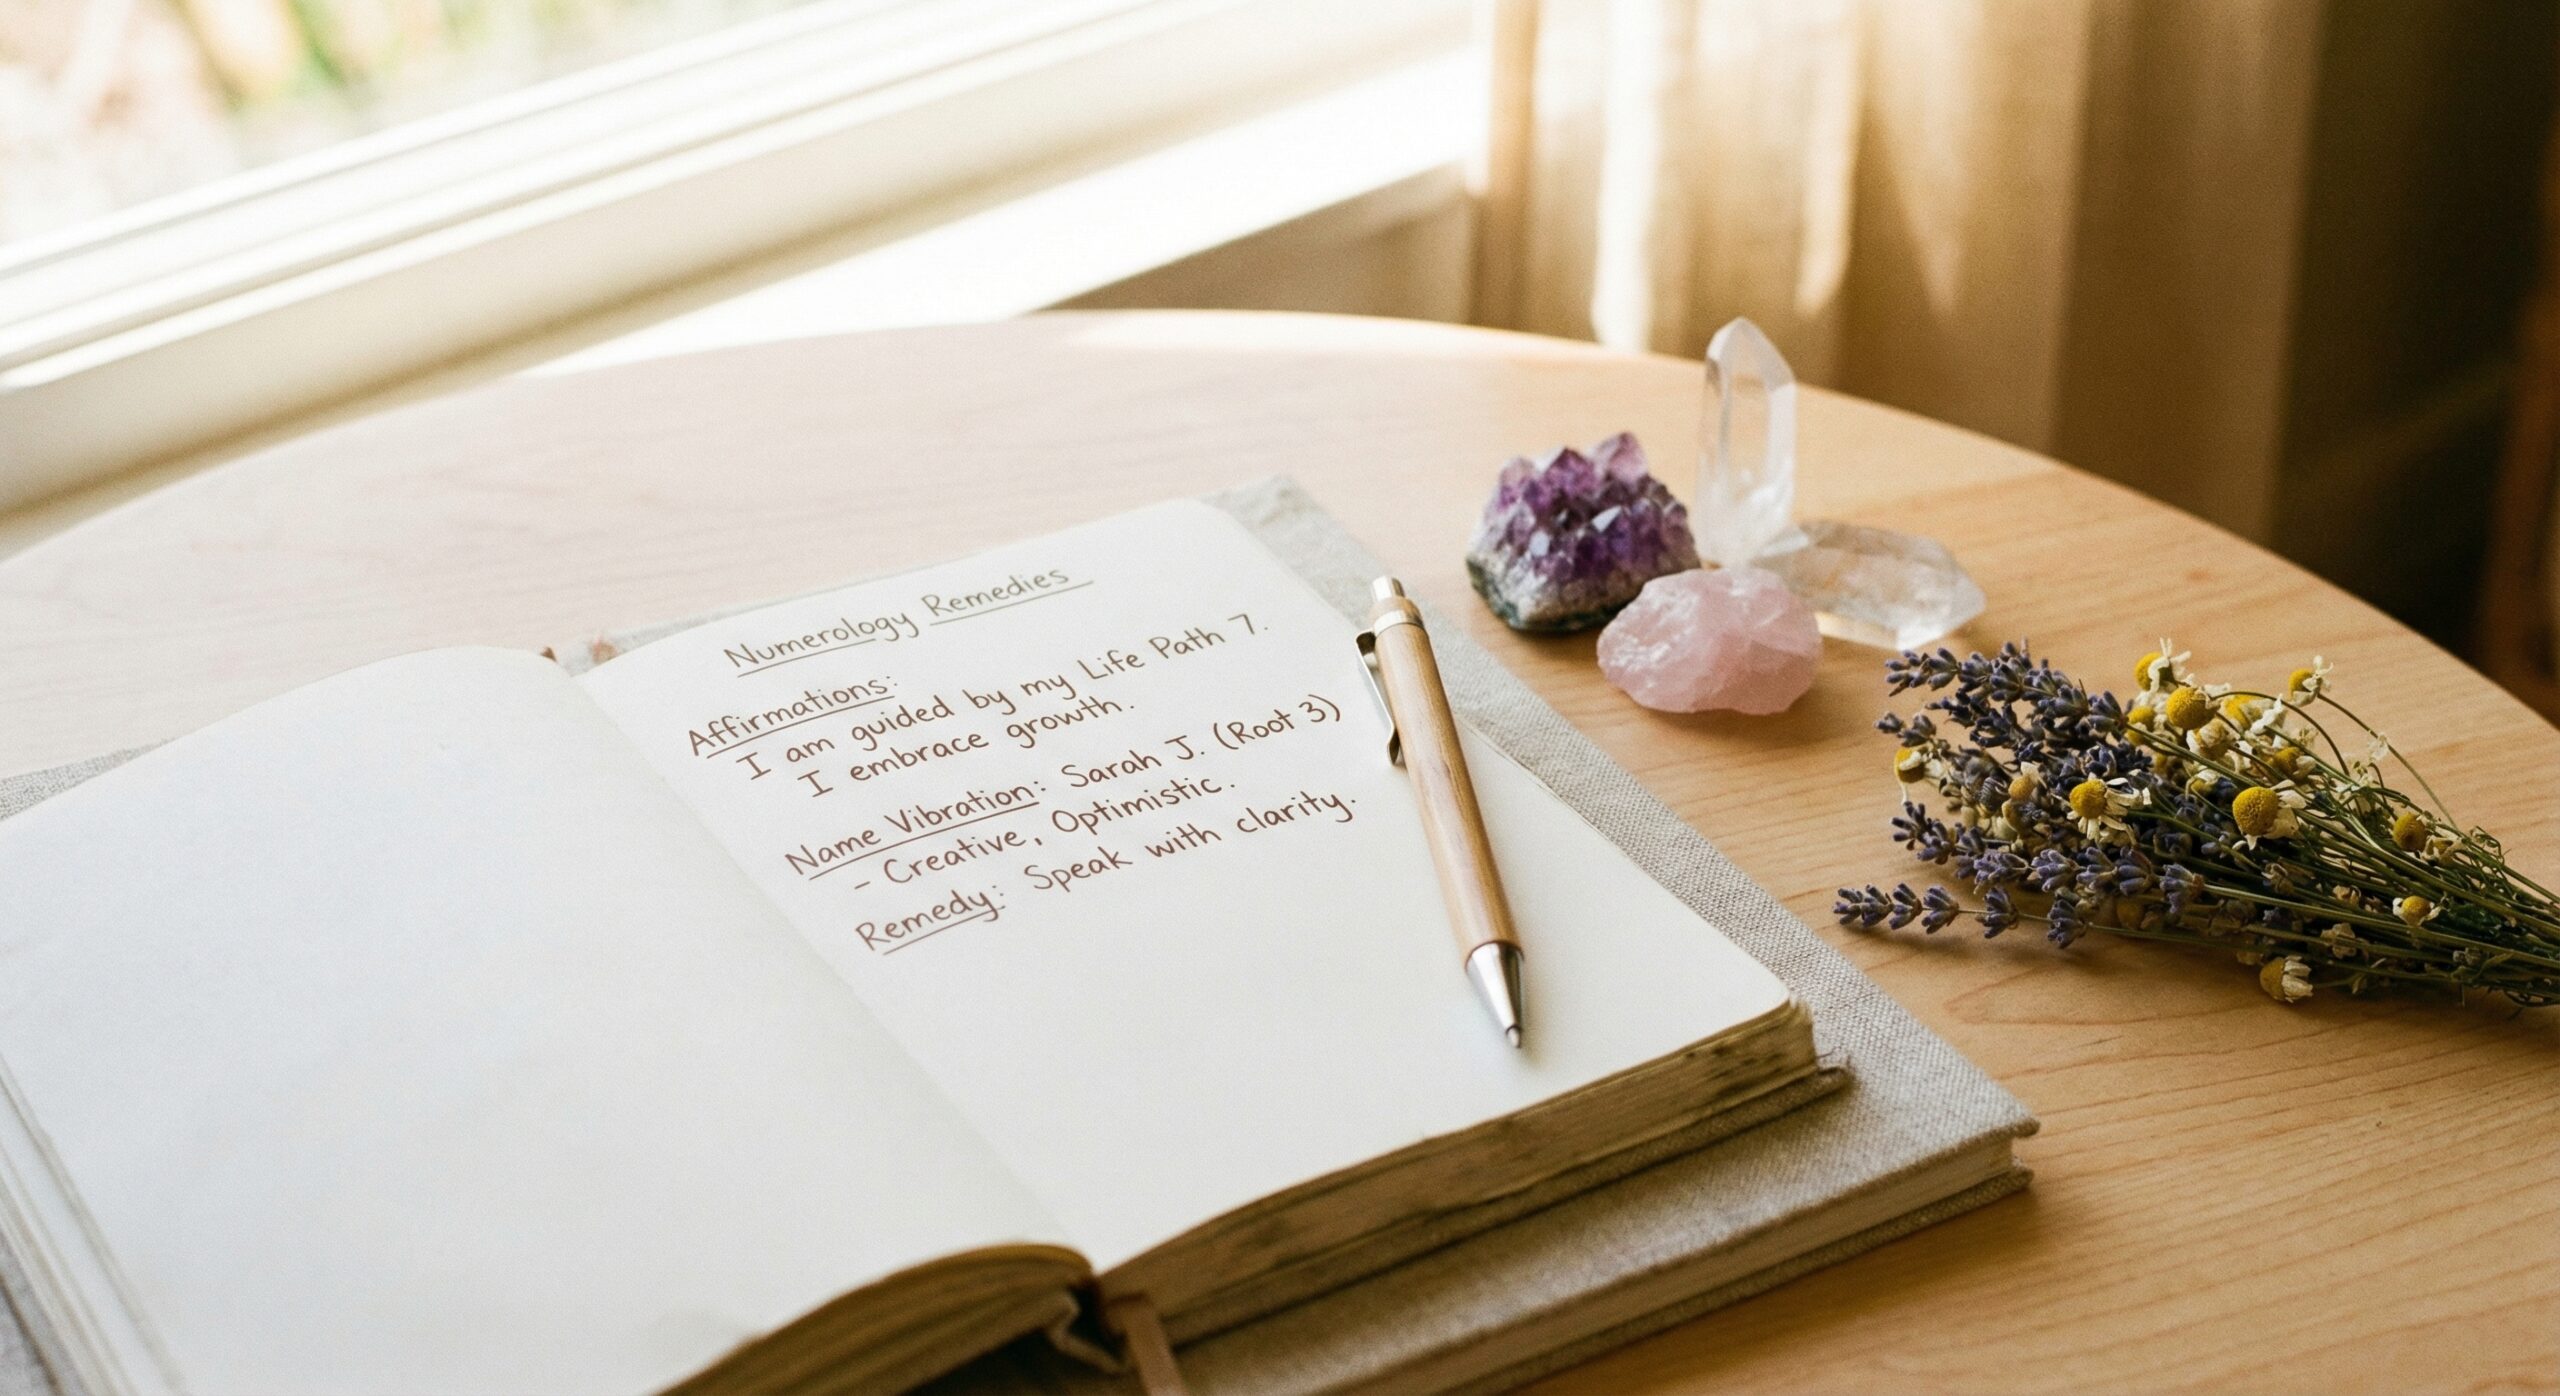 Numerology Remedies
Affirmations:
I am guided by my Life Path 7.
I embrace growth.
Name Vibration: Sarah J. (Root 3)
- Creative, Optimistic.
Remedy: Speak with clarity.